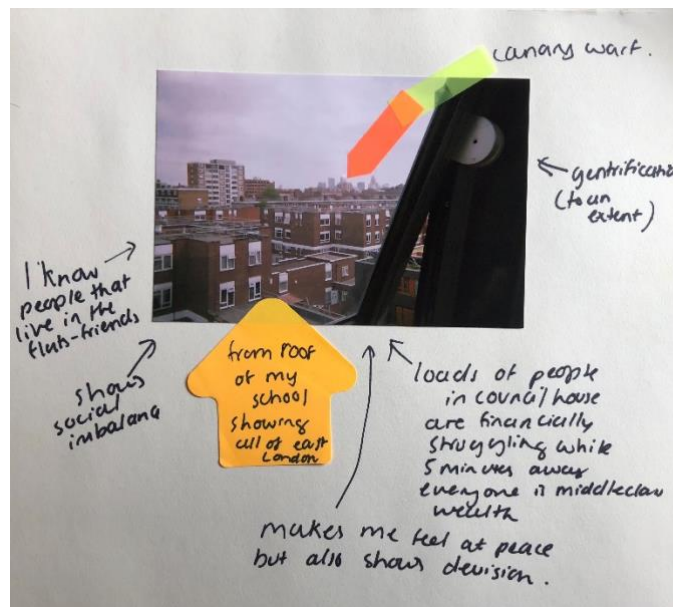 canary warf.
gentrification
(to an
extent)
I know
people that
live in the
flats-friends
shows
social
imbalana
from roof
of my
school
showing
all of east
London
loads of people
in council house
are financially
struggling while
5 minutes away
everyone is middleclass
wealth
makes me feel at peace
but also shows devision.